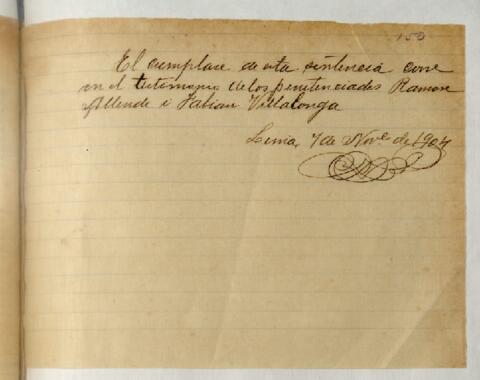 150
El cumplase de esta sentencia corre
en el testimonio de los penitenciados Ramon
Allende i Fabian Villalonga
Lima, 7 de Nove de 1904